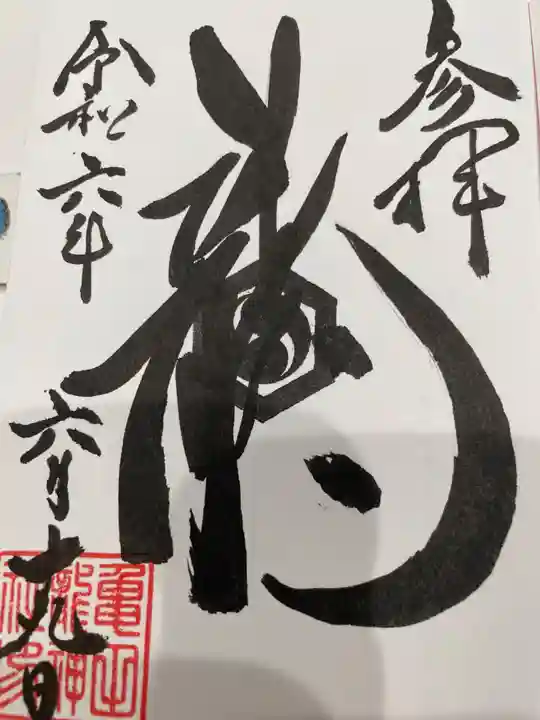 参拝
龍
令和六年
六月十九日
亀山
龍神